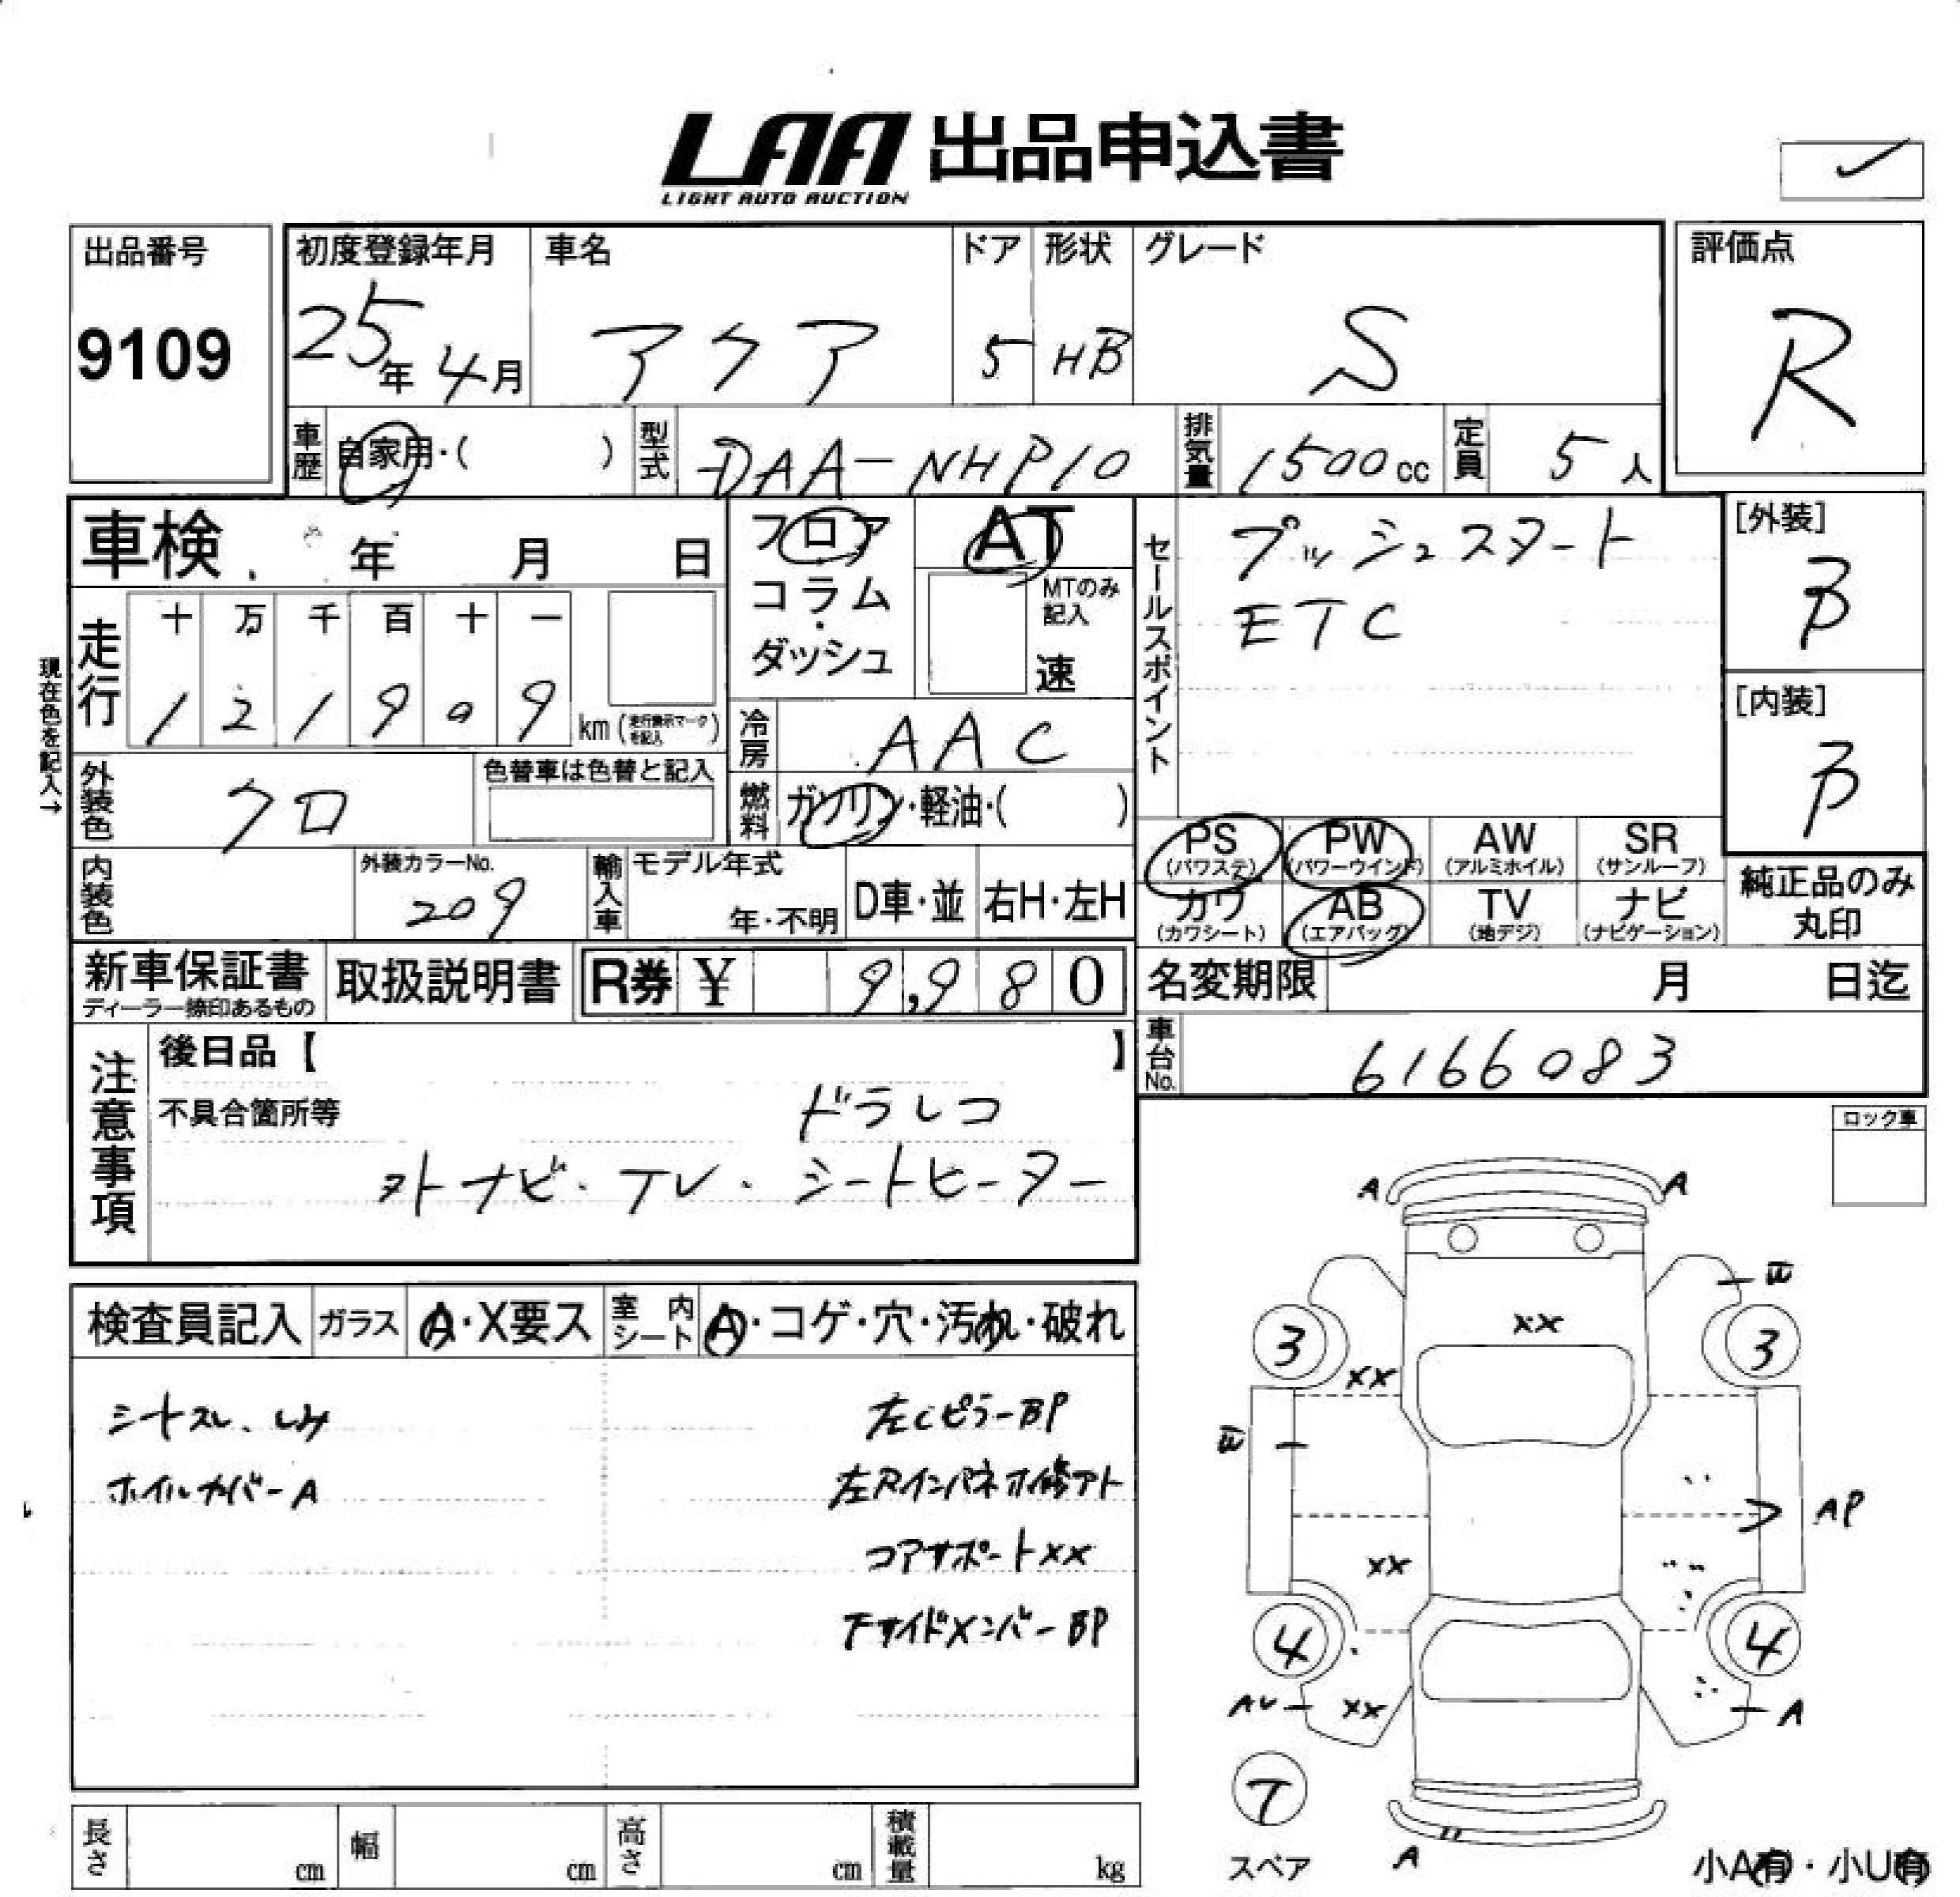 LAA 出品申込書
LIGHT AUTO AUCTION
出品番号
9109
初度登録年月
25年 4月
車名
アクア
ドア
5
形状
HB
グレード
S
評価点
R
車歴 自家用・( )
型式 DAA-NHP10
排気量 1500cc
定員 5人
車検 年 月 日
走行
十 万 千 百 十 一
1 2 1 9 0 9 km (走行表示マークを記入)
現在色を記入→
フロア
コラム
・
ダッシュ
AT
MTのみ記入
速
冷房 AAC
燃料 ガソリン・軽油・( )
セールスポイント
プッシュスタート
ETC
[外装]
B
[内装]
B
外装色 クロ
色替車は色替と記入
内装色
外装カラーNo.
209
輸入車
モデル年式
年・不明
D車・並 右H・左H
PS (パワステ)
PW (パワーウインド)
AW (アルミホイル)
SR (サンルーフ)
カワ (カワシート)
AB (エアバッグ)
TV (地デジ)
ナビ (ナビゲーション)
純正品のみ
丸印
新車保証書
ディーラー捺印あるもの
取扱説明書
R券 ¥ 9,980
名変期限 月 日迄
車台No. 6166083
注意事項
後日品【 】
不具合箇所等
ドラレコ
外ナビ・TV・シートヒーター
ロック車
検査員記入 ガラス A・X要ス 室内シート A・コゲ・穴・汚れ・破れ
シートスレ、しみ
ホイルカバーA
左CピラーBP
左Rインパネホ修アト
コアサポートXX
FサイドメンバーBP
A A
E
3 XX 3
XX
E
AP
XX
4 4
AU XX A
7
スペア
A
小A有・小U有
長さ cm
幅 cm
高さ cm
積載量 kg